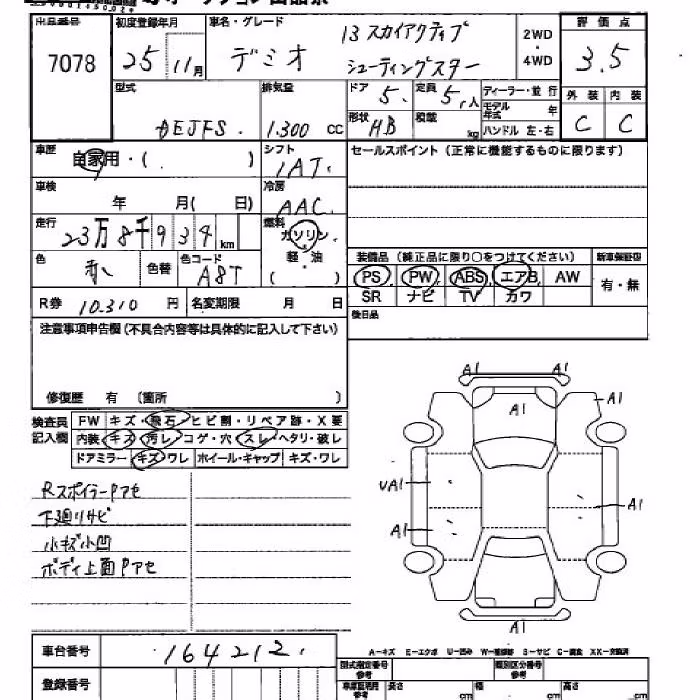 出品番号 初度登録年月 車名・グレード 評価点
7078 25年11月 デミオ 13 スカイアクティブ シューティングスター 2WD・4WD 3.5
型式 排気量 ドア 5. 定員 5.人 ディーラー・並行 外装 内装
DEJFS. 1.300 cc 形状 HB 積載 kg モデル年式 年 C C
ハンドル 左・右
車歴 自家用・( ) シフト 1AT. セールスポイント(正常に機能するものに限ります)
車検 年 月( 日) 冷房 AAC.
走行 23万8千934km 燃料 ガソリン・軽・油 ( )
色 赤 色替 色コード A8T
装備品(純正品に限り○をつけてください) 新車保証書
PS PW ABS エアB AW 有・無
SR ナビ TV カワ
R券 10.310 円 名変期限 月 日 後日品
注意事項申告欄(不具合内容等は具体的に記入して下さい)
修復歴 有 (箇所 )
検査員記入欄 FW キズ・飛石・ヒビ割・リペア跡・X要
内装・キズ・汚レ・コゲ・穴・スレ・ヘタリ・破レ
ドアミラー・キズ・ワレ ホイール・キャップ キズ・ワレ
Rスポイラーアセ
下廻リサビ
小キズ小凹
ボディ上面アセ
A1 A1
A1 A1
UA1
A1 A1
A1
A-キズ E-エクボ U-凹み W-補修跡 S-サビ C-腐食 XX-交換済
車台番号 164212.
型式指定番号 参考 類別区分番号 参考
登録番号 車庫証明用 参考 長さ cm 幅 cm 高さ cm